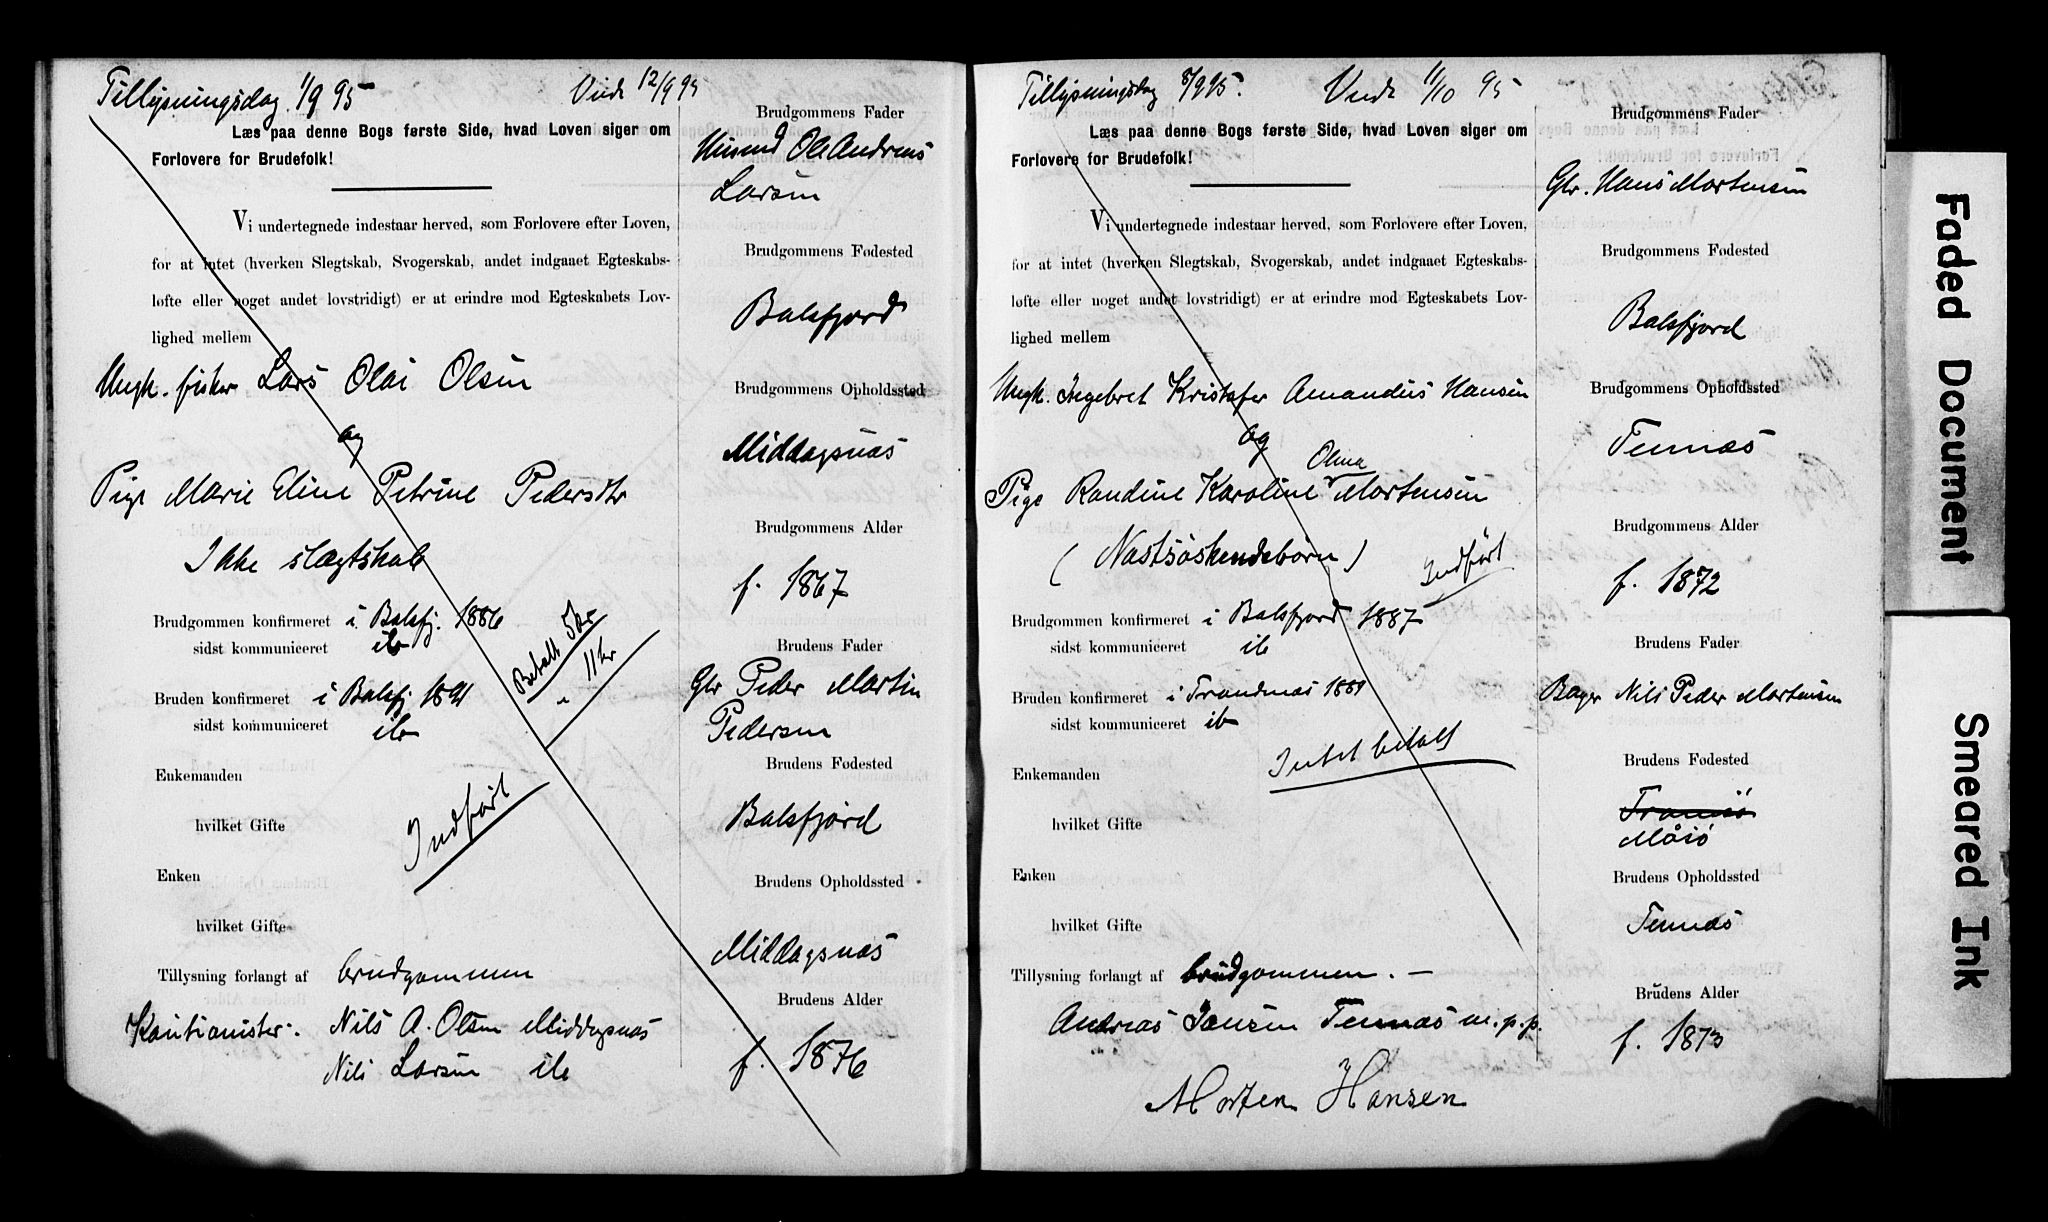 Tillysningsdag 1/9 95 Viede 12/9 95
Læs paa denne Bogs første Side, hvad Loven siger om
Forlovere for Brudefolk!
Vi undertegnede indestaar herved, som Forlovere efter Loven,
for at intet (hverken Slegtskab, Svogerskab, andet indgaaet Egteskabs-
løfte eller noget andet lovstridigt) er at erindre mod Egteskabets Lov-
lighed mellem
Ungk. fisker Lars Olai Olsen
og
Pige Marie Eline Petrine Pedersdtr
Ikke slægtskab
Brudgommen konfirmeret i Balsfj. 1886
sidst kommuniceret ib
Bruden konfirmeret i Balsfj 1891
sidst kommuniceret ib
Betalt 5 kr
" 11 kr
Enkemanden
hvilket Gifte
Indført
Enken
hvilket Gifte
Tillysning forlangt af brudgommen
Kautionister: Nils A. Olsen Middagsnæs
Nils Larsen ib
Brudgommens Fader
Husmd Ole Andreas
Larsen
Brudgommens Fødested
Balsfjord
Brudgommens Opholdssted
Middagsnæs
Brudgommens Alder
f. 1867
Brudens Fader
Gbr Peder Martin
Pedersen
Brudens Fødested
Balsfjord
Brudens Opholdssted
Middagsnæs
Brudens Alder
f. 1876
Tillysningsdag 8/9 95. Viede 11/10 95
Læs paa denne Bogs første Side, hvad Loven siger om
Forlovere for Brudefolk!
Vi undertegnede indestaar herved, som Forlovere efter Loven,
for at intet (hverken Slegtskab, Svogerskab, andet indgaaet Egteskabs-
løfte eller noget andet lovstridigt) er at erindre mod Egteskabets Lov-
lighed mellem
Ungk. Ingebret Kristofer Amandus Hansen
og
Olma
Pige Randine Karoline Mortensen
(Næstsøskendebørn)
Indført
Brudgommen konfirmeret i Balsfjord 1887
sidst kommuniceret ib
Bruden konfirmeret i Trondenæs 1889
sidst kommuniceret ib
Intet betalt
Enkemanden
hvilket Gifte
Enken
hvilket Gifte
Tillysning forlangt af brudgommen. –
Andreas Jensen Tennæs m. p. p.
Morten Hansen
Brudgommens Fader
Gbr. Hans Mortensen
Brudgommens Fødested
Balsfjord
Brudgommens Opholdssted
Tennæs
Brudgommens Alder
f. 1872
Brudens Fader
Bager Nils Peder Mortensen
Brudens Fødested
Tromsø
Måsø
Brudens Opholdssted
Tennæs
Brudens Alder
f. 1873
Faded Document
Smeared Ink